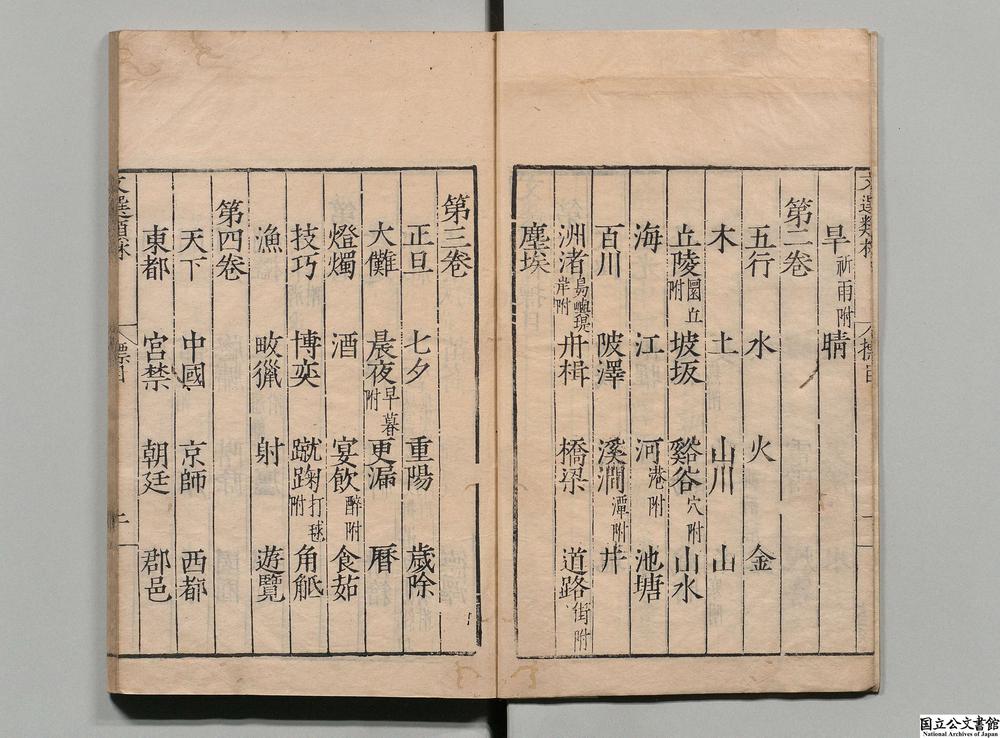 文選類林 標目 一
旱祈雨附 晴
第二卷
五行 水 火 金
木 土 山川 山
丘陵圜丘附 坡坂 谿谷穴附 山水
海 江 河港附 池塘
百川 陂澤 溪澗潭附 井
洲渚島嶼堤岸附 舟楫 橋梁 道路街附
塵埃
第三卷
正旦 七夕 重陽 歲除
大儺 晨夜早暮附 更漏 曆
燈燭 酒 宴飲醉附 食茹
技巧 博奕 蹴踘打毬附 角觝
漁 畋獵 射 遊覽
第四卷
天下 中國 京師 西都
東都 宮禁 朝廷 郡邑
文選類林 標目
国立公文書館
National Archives of Japan